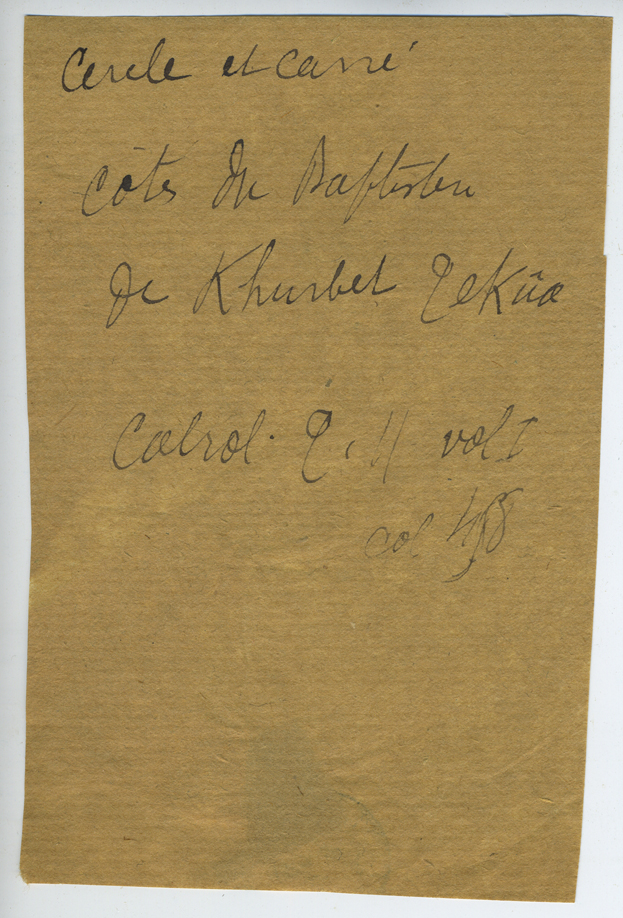 Cercle et carré
côtés du Baptistère
de Khurbet Tekûa
Cabrol. T. II vol I
col 458